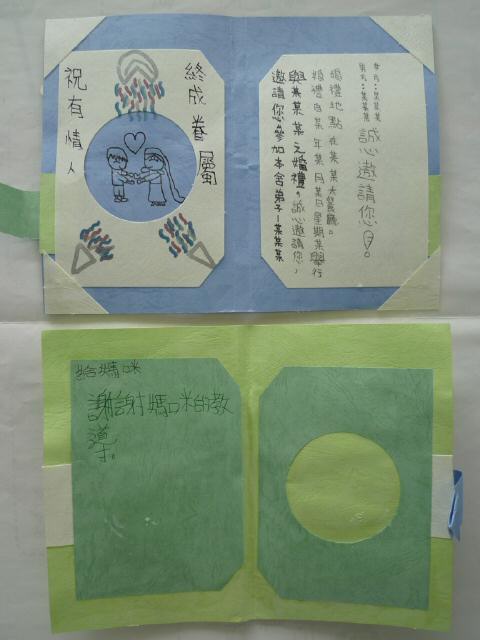 祝有情人
終成眷屬
邀請您參加本舍弟子-某某某
與某某某之婚禮。誠心邀請您,
婚禮自某年某月某日星期某舉行
婚禮地點在某某大餐廳。
男方:某某某
女方:某某某
誠心邀請您!。
給媽咪
謝謝媽咪的教
導。